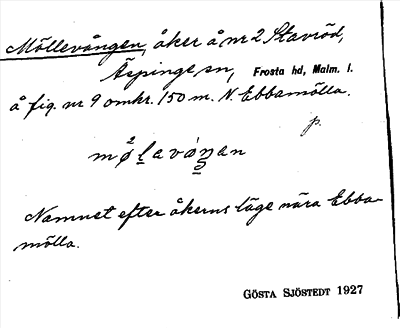 Möllevången, åker å nr 2 Stavröd,
Äspinge sn, Frosta hd, Malm. l.
å fig. nr 9 omkr. 150 m. N. Ebbamölla.
p.
mø̀lavóŋan
Namnet efter åkerns läge nära Ebba-
mölla.
GÖSTA SJÖSTEDT 1927